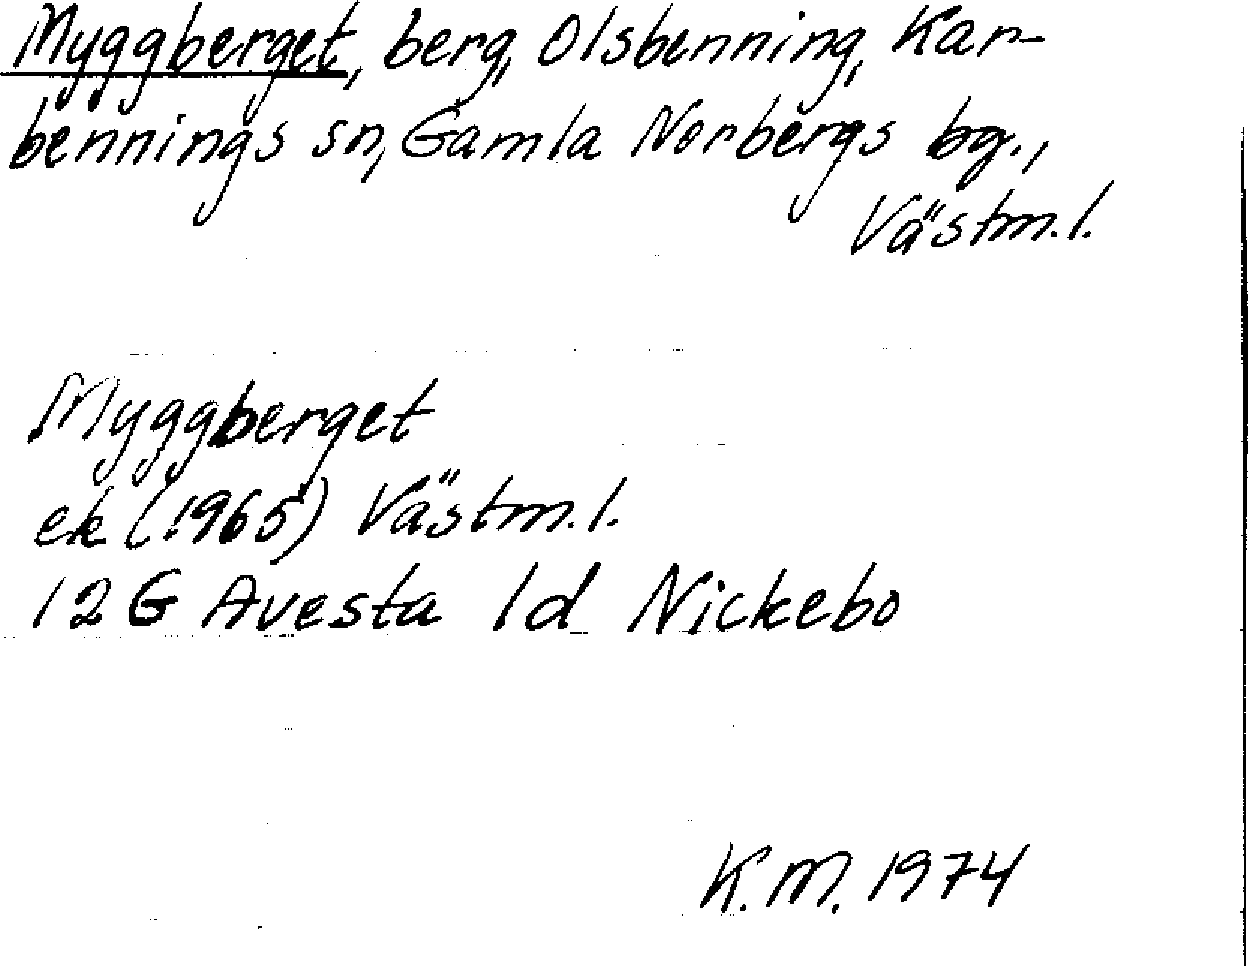 Myggberget, berg, Olsbenning, Kar-
bennings sn, Gamla Norbergs bg.,
Västm.l.
Myggberget
ek (1965) Västm.l.
12G Avesta 1d Nickebo
K.M. 1974